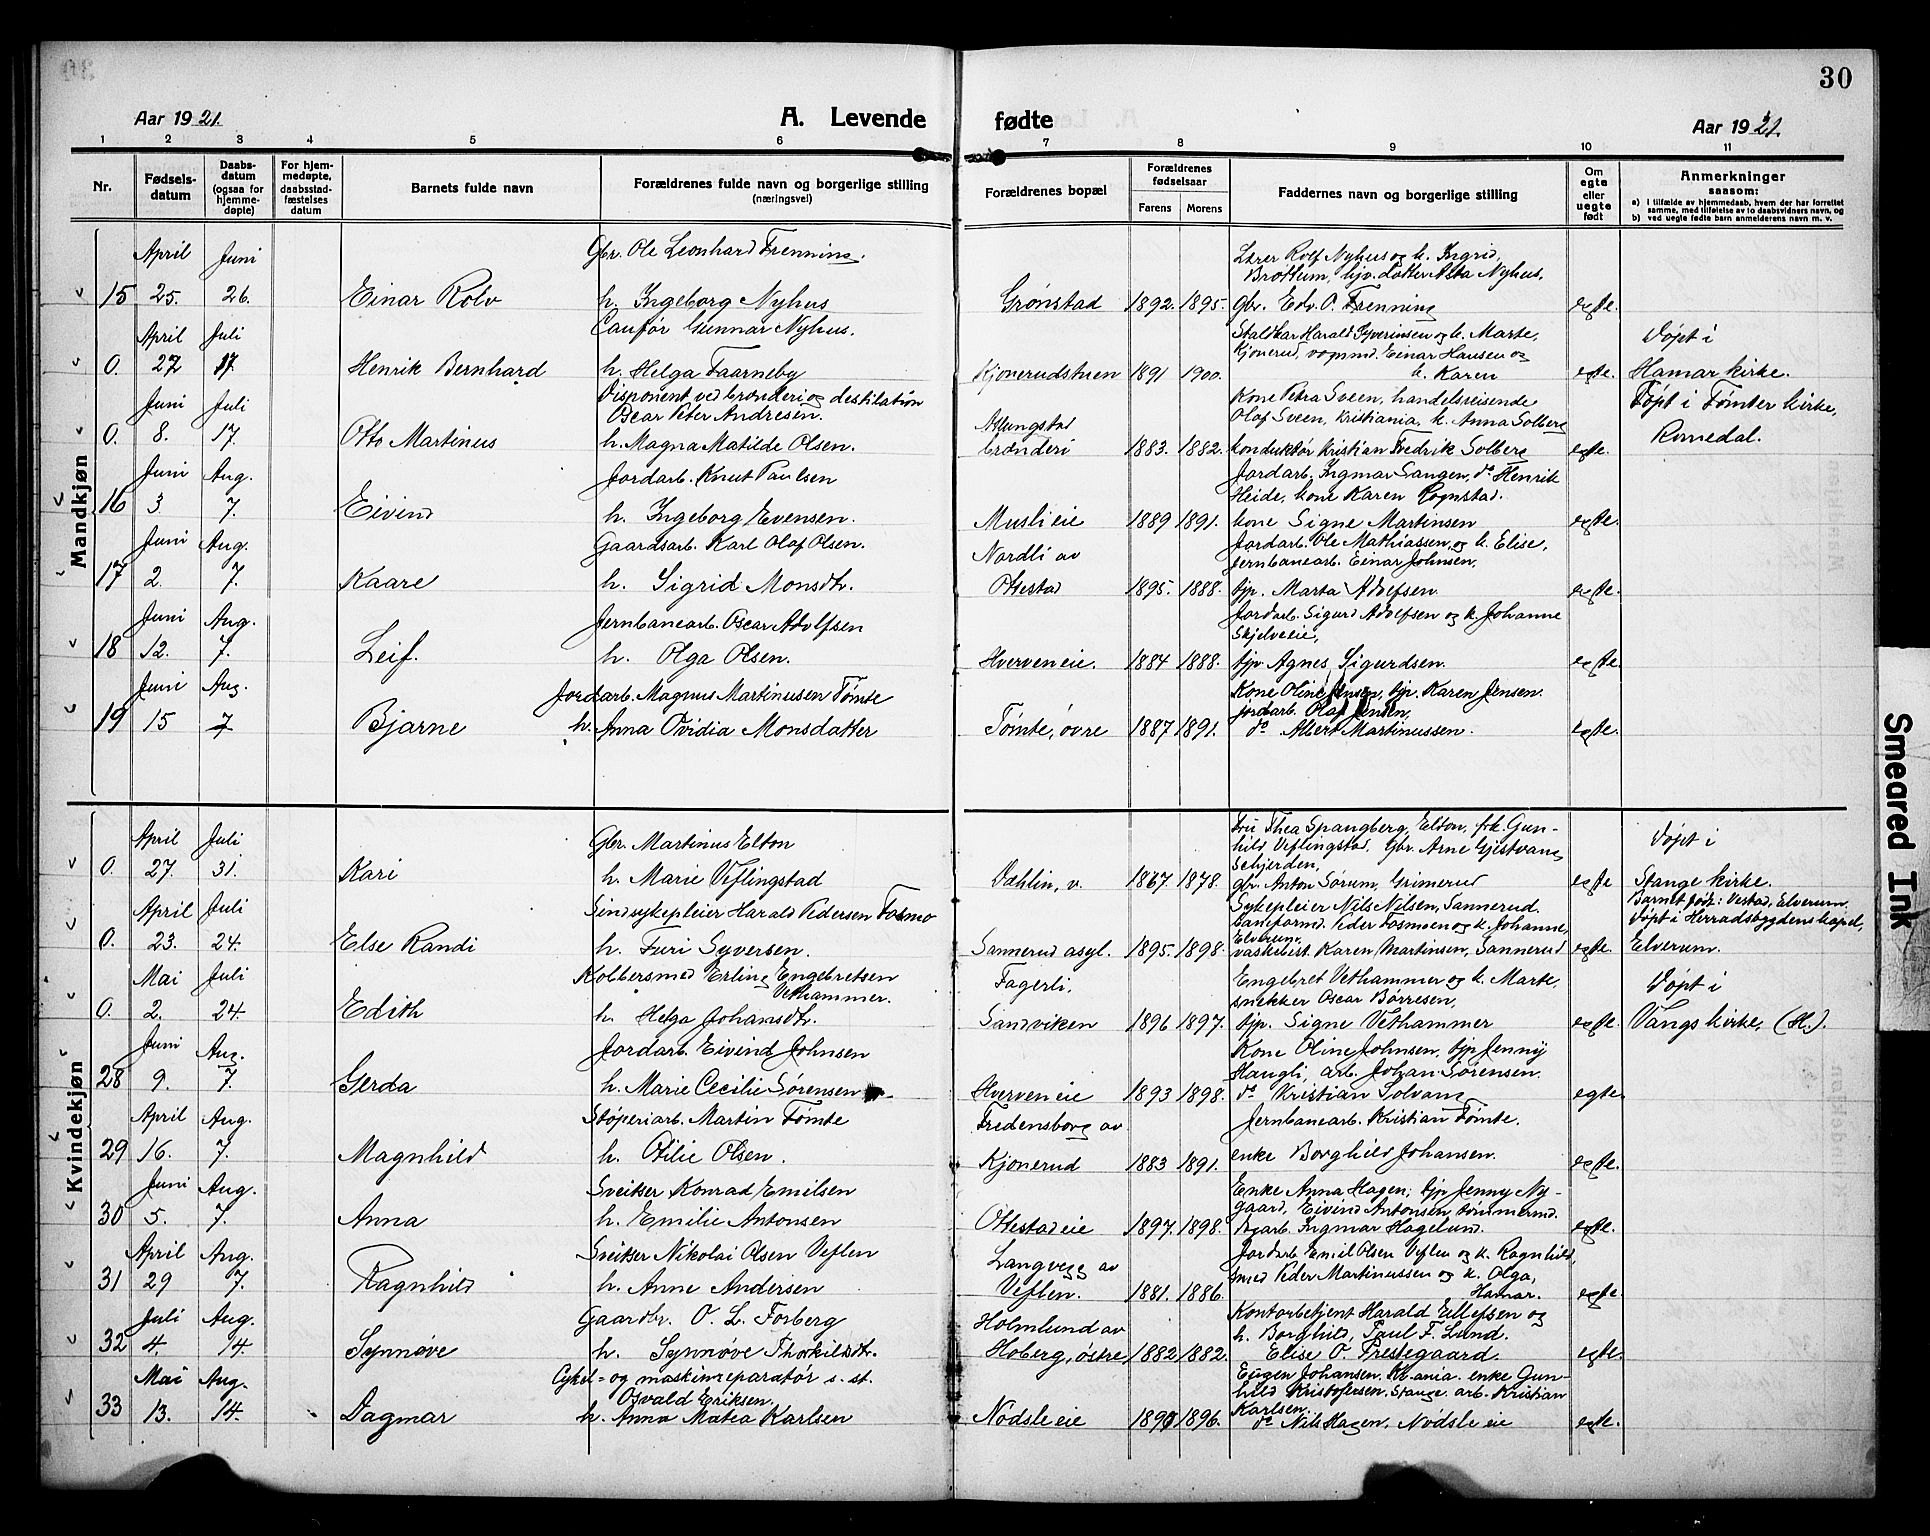 30
Aar 1921.
A. Levende
fødte
Aar 1921.
1 2 3 4 5 6 7 8 9 10 11
Nr.
Fødsels-
datum
Daabs-
datum
(ogsaa for
hjemme-
døpte)
For hjem-
medøpte,
daabsstad-
fæstelses
datum
Barnets fulde navn
Forældrenes fulde navn og borgerlige stilling
(næringsvei)
Forældrenes bopæl
Forældrenes
fødselsaar
Farens Morens
Faddernes navn og borgerlige stilling
Om
egte
eller
uegte
født
Anmerkninger
saasom:
a) I tilfælde av hjemmedaab, hvem der har forrettet
samme, med tilføielse av to daabsvidners navn, og
b) ved uegte fødte barn anmelderens navn m. v.
Mandkjøn
April Juni Gbr. Ole Leonhard Frenning. Lærer Rolf Nyhus og h. Ingrid,
Brøttum, hjv. datter Asta Nyhus,
15 25. 26. Einar Rolv h. Ingeborg Nyhus Grønstad 1892. 1895. gbr. Edv. O. Frenning egte.
April Juli Gunnar Nyhus. Staldkar Harald Syverinsen og h. Marte, Døpt i
Kjonerud, vognmd. Einar Hansen og
0. 27 17. Henrik Bernhard h. Helga Faarneby Kjonerudstuen 1891 1900. h. Karen egte. Hamar kirke.
Juni Juli Disponent ved brænderi og destilation Kone Petra Sveen, handelsreisende Døpt i Tømter kirke,
Oscar Peter Andresen. Atlungstad Olaf Sveen, Kristiania, h. Anna Solberg
0. 8. 17. Otto Martinus h. Magna Matilde Olsen. brænderi 1883. 1882. konduktør Kristian Fredrik Solberg egte. Romedal.
Juni Aug. Jordarb. Knut Paulsen Jordarb. Ingmar Sangen, do Henrik
Heide, kone Karen Rognstad.
16 3. 7. Eivind h. Ingeborg Evensen. Musli eie 1889 1891. kone Signe Martinsen egte.
Juni Aug. Gaardsarb. Karl Olaf Olsen. Nordli av Jordarb. Ole Mathiassen og h. Elise,
jernbanearb. Einar Johnsen,
17 2. 7. Kaare h. Sigrid Monsdtr. Ottestad 1895. 1888. tjp. Marta Adolfsen egte.
Juni Aug. Jernbanearb. Oscar Adolfsen Jordarb. Sigurd Adolfsen og h. Johanne
Skjelveeie,
18 12. 7. Leif. h. Olga Olsen. Hverven eie. 1884 1888. tjp Agnes Sigurdsen. egte.
Juni Aug. Jordarb. Magnus Martinusen Tømte Kone Oline Jensen, tjp. Karen Jensen.
jordarb. Olaf Jensen,
19 15 7 Bjarne h. Anna Ovidia Monsdatter Tømte, øvre 1887 1891. do Albert Martinussen. egte.
Kvindekjøn
April Juli Gbr. Martinus Elton Fru Thea Spangberg, Elton, frk. Gun-
hild Veflingstad, Gbr. Arne Gjestvang, Døpt i
Schjerden,
0. 27. 31. Kari h. Marie Veflingstad Dæhlin, v. 1867. 1878. gbr. Anton Sørum, Grimerud egte Stange kirke.
April Juli Sindsykepleier Harald Pedersen Fosmo Sykepleier Nils Nilsen, Sannerud. Barnet født: Vestad, Elverum.
baneformd. Peder Fosmoen og h. Johanne, Døpt i Herradsbygdens kapel,
Elverum,
0. 23. 24. Else Randi h. Turi Syversen. Sannerud asyl. 1895. 1898. vaskebest. Karen Martinsen, Sannerud egte. Elverum.
Mai Juli Kobbersmed Erling Engebretsen Fagerli, Engebret Vethammer og h. Marte, Døpt i
Vethammer. snekker Oscar Børresen,
0. 2. 24. Edith h. Helga Johansdtr. Sandviken 1896 1897. tjp. Signe Vethammer egte. Vangs kirke, (H.).
Juni Aug. Jordarb. Eivind Johnsen Kone Oline Johnsen, tjp Jenny
Haugli, arb. Johan Sørensen.
28 9. 7. Gerda h. Marie Cecilie Sørensen Hverven eie 1893 1898. do Kristian Solvang egte.
April Aug. Støperiarb. Martin Tømte Fredensborg av Jernbanearb. Kristian Tømte.
29 16. 7. Magnhild h. Otilie Olsen. Kjonerud 1883 1891. enke Borghild Johansen. egte.
Juni Aug. Sveitser Konrad Emilsen Enke Anna Hagen; tjp Jenny Ny-
gaard, Eivind Antonsen tømmermd.
30 5. 7. Anna h. Emilie Antonsen Ottestad eie 1897. 1898. Ingmar Hagelund. egte.
April Aug. Sveitser Nikolai Olsen Veflen Langvegg av Jordarb Emil Olsen Veflen og h. Ragnhild,
smed Peder Martinussen og h. Olga,
31 29 7. Ragnhild h. Anne Andersen Veflen. 1881. 1886. Hamar. egte.
Juli Aug. Gaardbr. O. L. Forberg Holmlund av Kontorbetjent Harald Ellefsen og
h. Borghild, Paul F. Lund.
32 4. 14. Synnøve h. Synnøve Thorkildsdtr. Hoberg, østre 1882 1882. Elise O. Prestegaard. egte.
Mai Aug. Cykel- og maskinreparatør s. st. Eugen Johansen, Kr.ania. enke Gun-
Osvald Eriksen hild Kristofersen, Stange. arb. Kristian
Karlsen.
33 13. 14. Dagmar h. Anna Matea Karlsen Nødsle eie 1896. do Nils Hagen, Nødsle eie egte.
Smeared Ink